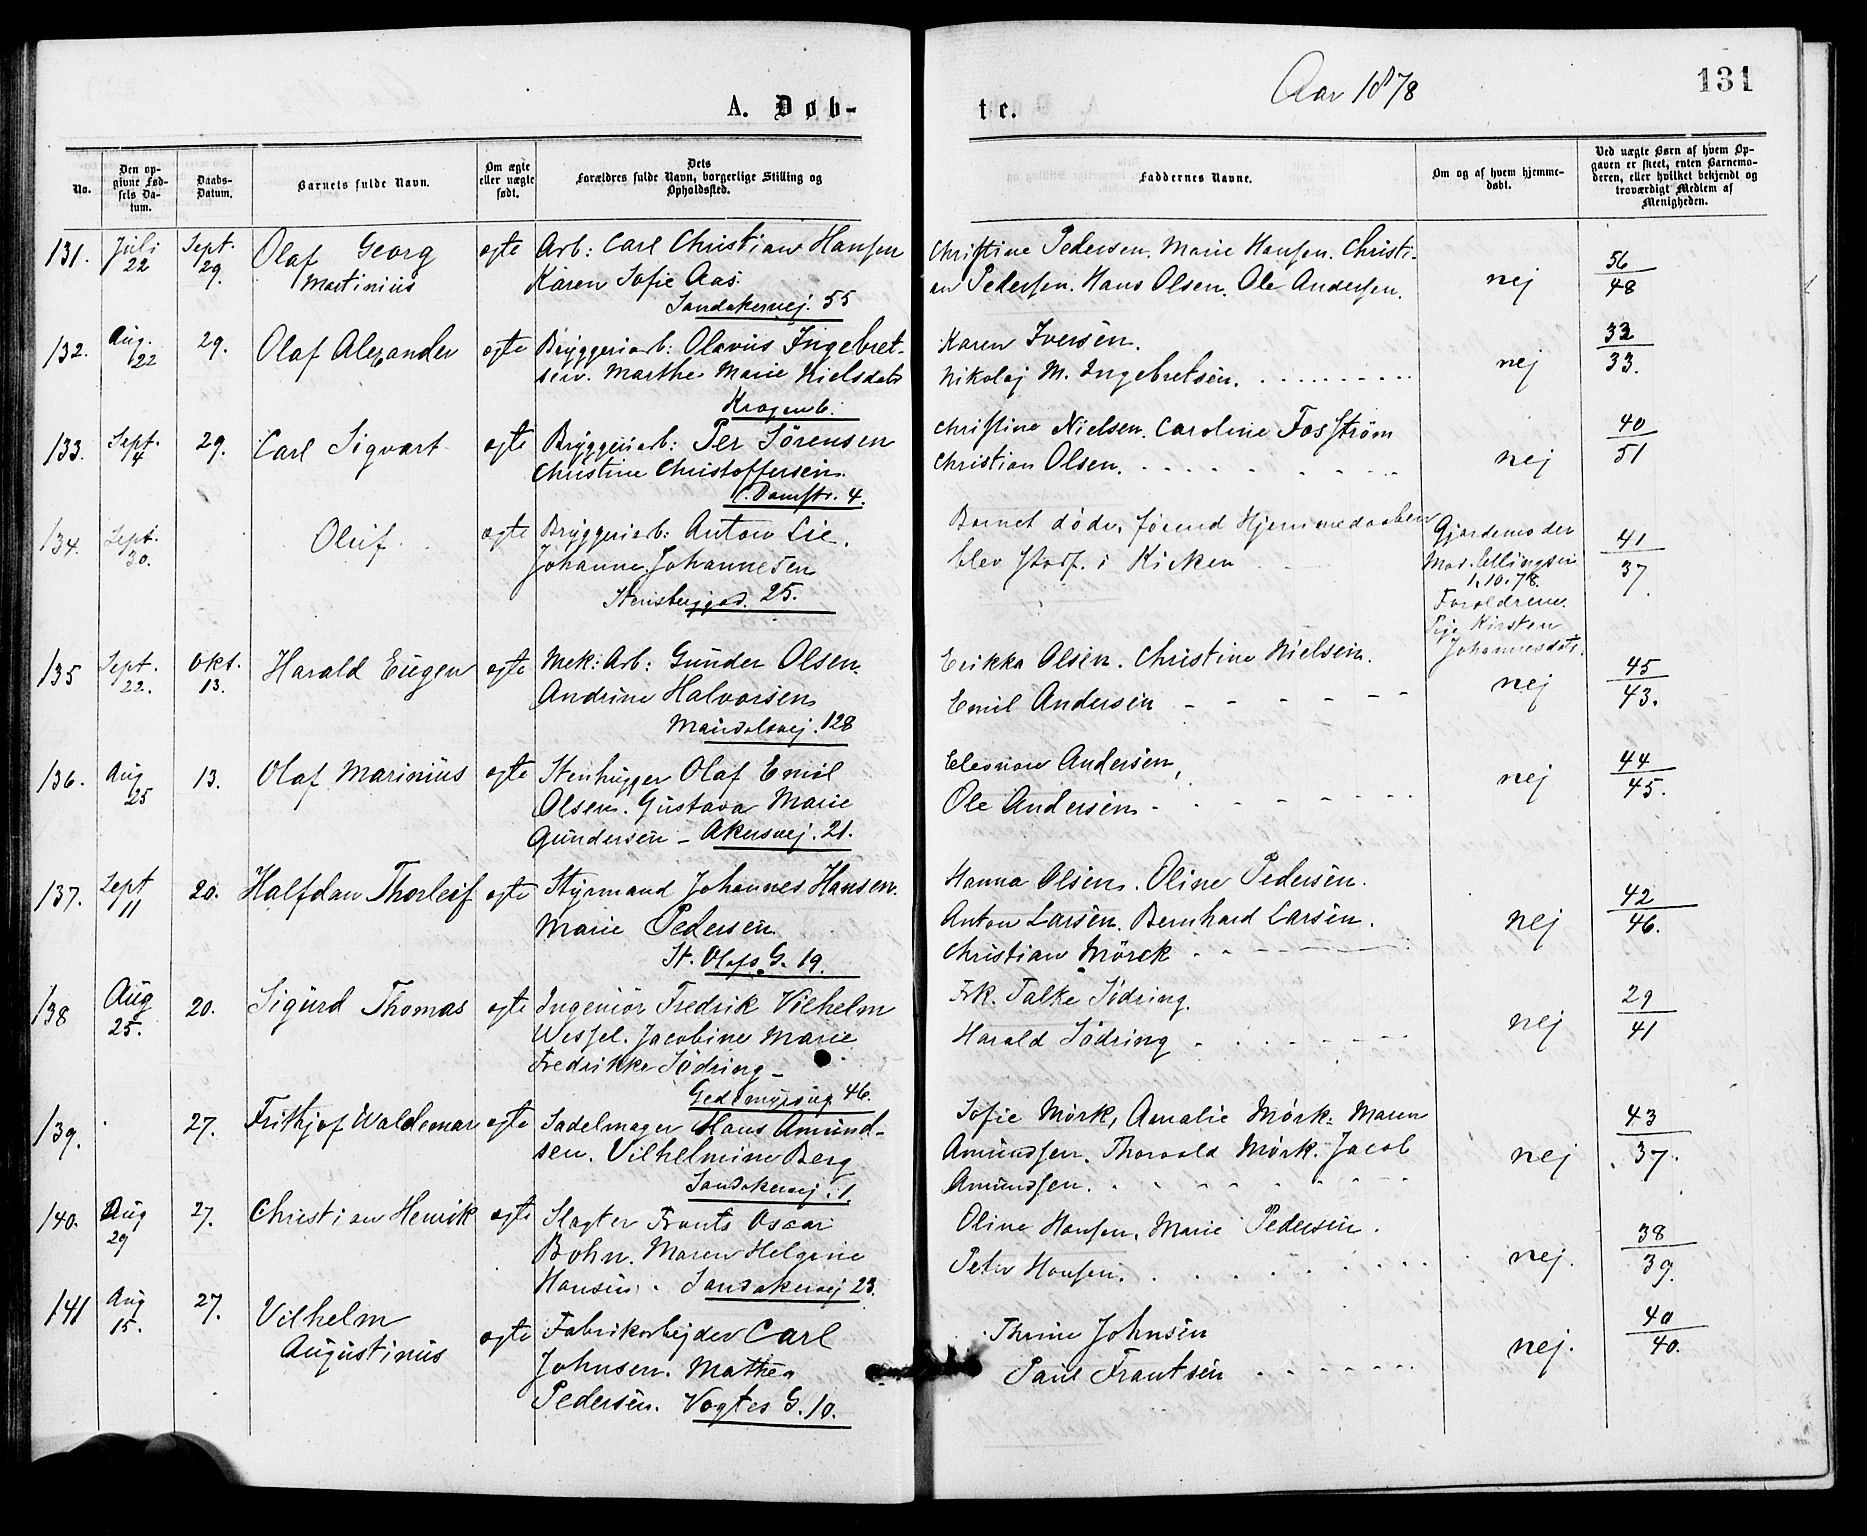 Aar 1878
131
A. Døb-
te.
No.
Den op-
givne Fød-
sels Da-
tum.
Daabs-
Datum.
Barnets fulde Navn.
Om ægte
eller uægte
født.
Dets
Forældres fulde Navn, borgerlige Stilling og
Opholdssted.
Faddernes Navne.
Om og af hvem hjemme-
døbt.
Ved uægte Børn af hvem Op-
gaven er skeet, enten Barnemo-
deren, eller hvilket bekjendt og
troværdigt Medlem af
Menigheden.
131.
Juli
22
Sept.
29.
Olaf Georg
Martinius
ægte
Arb: Carl Christian Hansen
Karen Sofie Aas.
Sandakervej. 55
Christine Pedersen. Marie Hansen. Christi-
an Pedersen. Hans Olsen. Ole Andersen.
nej
56
48
132.
Aug.
22
29.
Olaf Alexander
ægte
Bryggeriarb: Olavus Ingebret-
sen. Marthe Marie Nielsdatr
Krogenb.
Karen Iversen.
Nikolaj M. Ingebretsen.
nej
32
33.
133.
Sept.
4
29.
Carl Sigvart
ægte
Bryggeriarb: Per Sörensen
Christine Christoffersen
C. Damstr. 4.
Christine Nielsen. Caroline Fosström
Christian Olsen.
nej
40
51
134.
Sept.
30.
Oluf.
ægte
Bryggeriarb: Anton Lie.
Johanne Johannesen
Stensberggad. 25.
Barnet døde, førend Hjemmedaaben
blev stadf. i Kirken
Gjordemoder
Mad. Ellingsen
1.10.78.
Forældrene.
Pige Kirsten
Johannesdatr.
41
37.
135
Sept.
22.
Okt.
13.
Harald Eugen
ægte
Mek: Arb: Gunder Olsen
Andrine Halvorsen
Maridalsvej. 128
Erikka Olsen. Christine Nielsen.
Emil Andersen
nej
45
43.
136.
Aug
25
13.
Olaf Marinius
ægte
Stenhugger Olaf Emil
Olsen. Gustava Marie
Gundersen – Akersvej. 21.
Eleonore Andersen,
Ole Andersen
nej
44
45.
137.
Sept
11
20.
Halfdan Thorleif
ægte
Styrmand Johannes Hansen.
Marie Pedersen
St. Olafs G. 19.
Hanna Olsen. Oline Pedersen.
Anton Larsen. Bernhard Larsen.
Christian Mörck
nej
42
46.
138
Aug
25.
20.
Sigurd Thomas
ægte
Ingeniör Fredrik Vilhelm
Wessel. Jacobine Marie
Fredrikke Södring –
Gedemyrsvg 46.
Frk. Talke Södring.
Harald Södring
nej
29
41
139.
27.
Frithjof Waldemar
ægte
Sadelmager Hans Amund-
sen. Vilhelmine Berg
Sandakervej. 1.
Sofie Mörk, Amalie Mörk. Maren
Amundsen. Thorvald Mörk. Jacob
Amundsen.
nej
43
37.
140.
Aug
29
27.
Christian Henrik
ægte
Slagter Frants Oscar
Bohn. Maren Helgine
Hansen. Sandakervej 23.
Oline Hansen, Marie Pedersen.
Peter Hansen.
nej.
38
39.
141
Aug
15.
27.
Vilhelm
Augustinus
ægte
Fabrikarbejder Carl
Johnsen. Mathea
Pedersen. Vogtes G. 10.
Thrine Johnsen
Paul Frantsen
nej.
40
40.